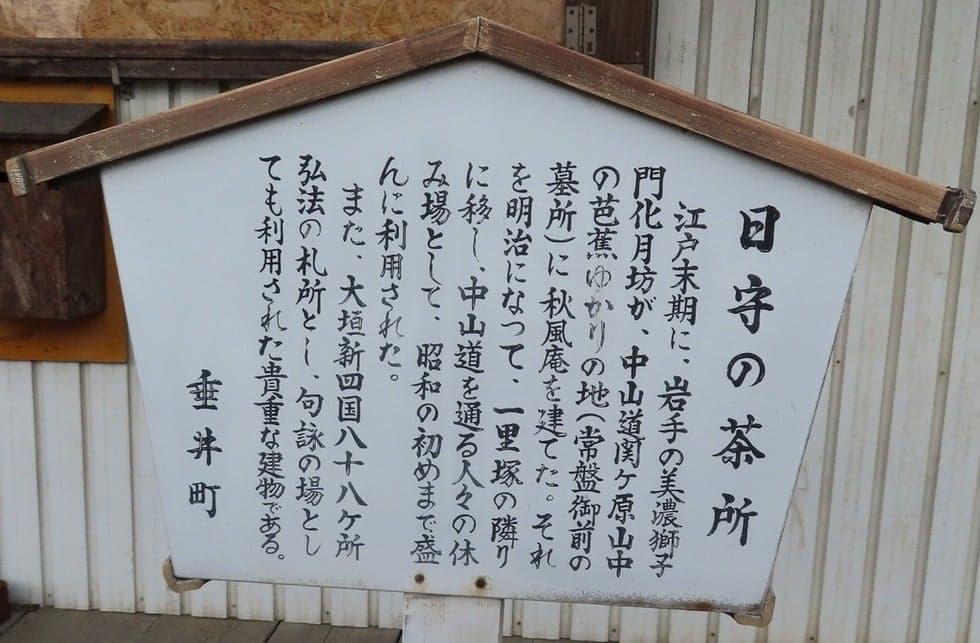 日守の茶所
江戸末期に、岩手の美濃獅子
門化月坊が、中山道関ケ原山中
の芭蕉ゆかりの地(常盤御前の
墓所)に秋風庵を建てた。それ
を明治になつて、一里塚の隣り
に移し、中山道を通る人々の休
み場として、昭和の初めまで盛
んに利用された。
また、大垣新四国八十八ケ所
弘法の札所とし、句詠の場とし
ても利用された貴重な建物である。
垂井町